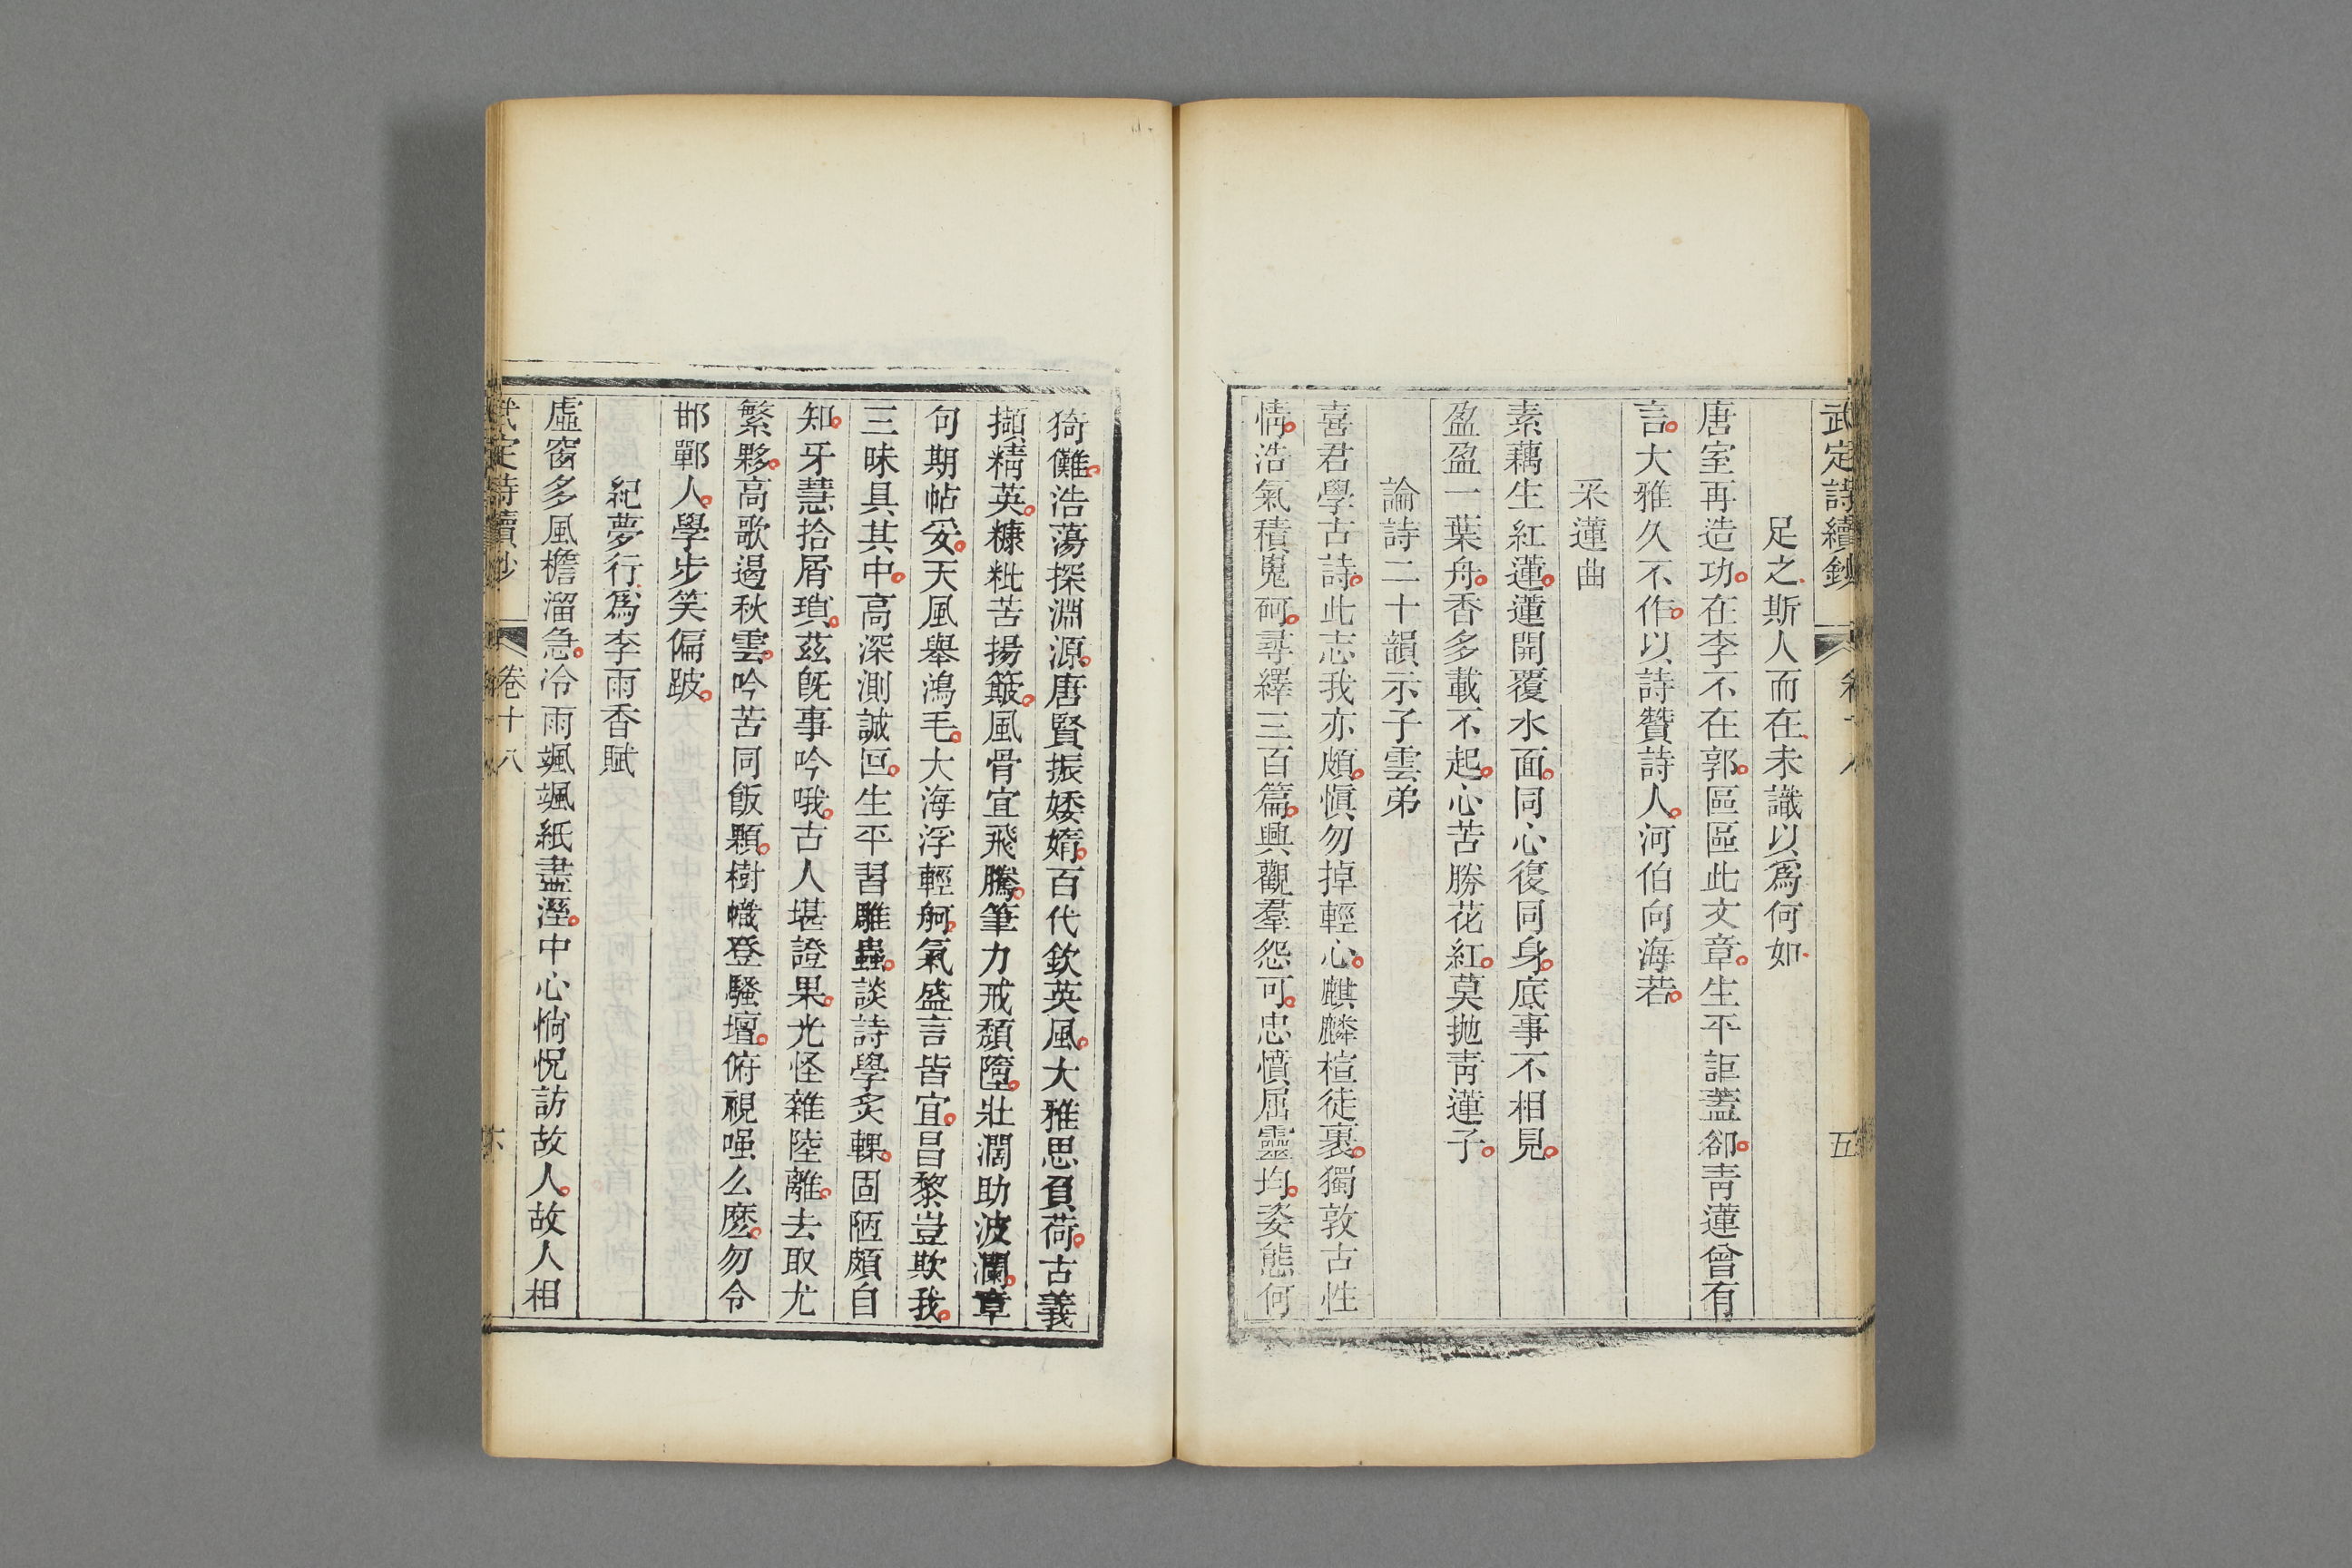 武定詩續鈔
五
足之斯人而在未識以爲何如
唐室再造功在李不在郭區區此文章生平詎蓋卻靑蓮曾有
言大雅久不作以詩贊詩人河伯向海若
采蓮曲
素藕生紅蓮蓮開覆水面同心復同身底事不相見
盈盈一葉舟香多載不起心苦勝花紅莫拋靑蓮子
論詩二十韻示子雲弟
喜君學古詩此志我亦頗愼勿掉輕心麒麟楦徒裹獨敦古性
情浩氣積嵬砢尋繹三百篇興觀羣怨可忠憤屈靈均姿態何
猗儺浩蕩探淵源唐賢振婑媠百代欽英風大雅思負荷古義
擷精英糠粃苦揚簸風骨宜飛騰筆力戒頹墮壯濶助波瀾章
句期帖妥天風舉鴻毛大海浮輕舸氣盛言皆宜昌黎豈欺我
三昧具其中高深測誠叵生平習雕蟲談詩學炙輠固陋頗自
知牙慧拾屑瑣茲旣事吟哦古人堪證果光怪雜陸離去取尤
繁夥高歌遏秋雲吟苦同飯顆樹幟登騷壇俯視嗤么麽勿令
邯鄲人學步笑偏跛
紀夢行爲李雨香賦
虛窗多風檐溜急冷雨颯颯紙盡溼中心惝怳訪故人故人相
武定詩續鈔
卷十八